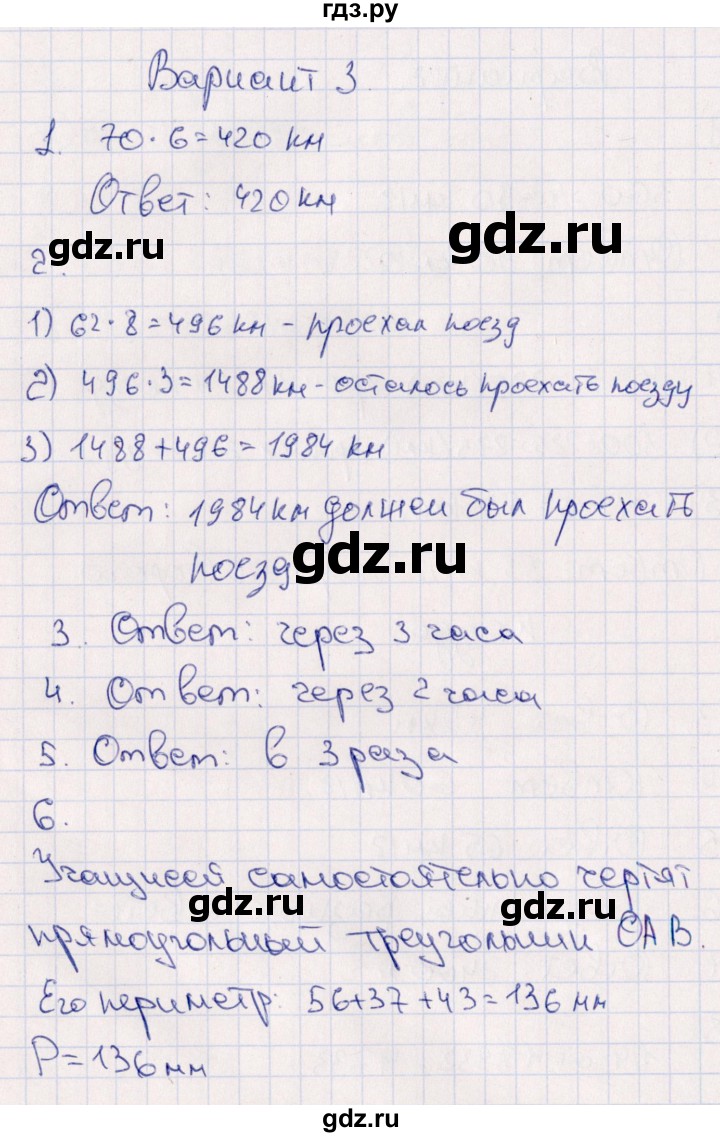 гдз.ру
Вариант 3.
1. 70·6=420 км
Ответ: 420 км
gdz.ru gdz.ru
2.
1) 62·8=496 км - проехал поезд
2) 496·3=1488 км - осталось проехать поезду
3) 1488+496=1984 км
Ответ: 1984 км должен был проехать
поезд
gdz.ru
3. Ответ: через 3 часа
4. Ответ: через 2 часа
5. Ответ: в 3 раза
6.
Учащиеся самостоятельно чертят
gdz.ru gdz.ru
прямоугольный треугольник САВ.
Его периметр: 56+37+43=136 мм
P=136 мм
gdz.ru